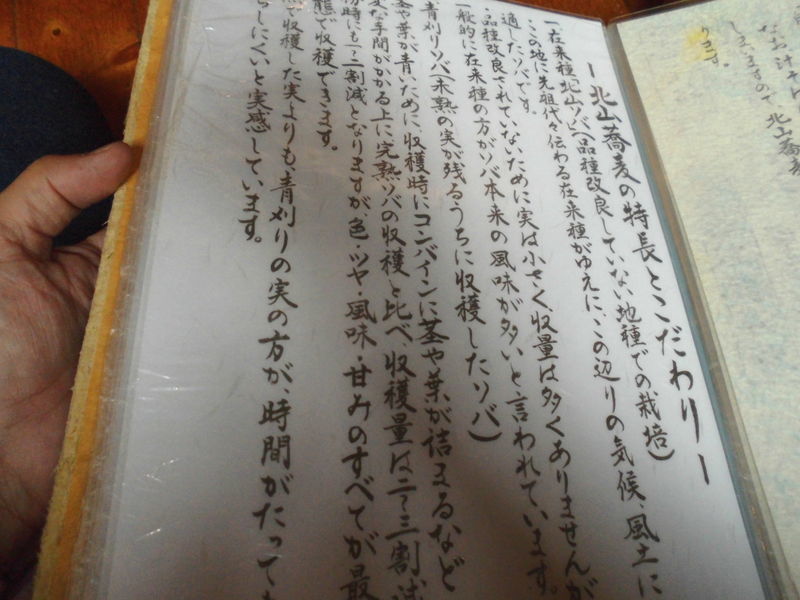 ー北山蕎麦の特長とこだわりー
一、在来種「北山ソバ」(品種改良していない地種での栽培)
この地に先祖代々伝わる在来種がゆえに、この辺りの気候、風土に
適したソバです。
品種改良されていないために実は小さく、収量は多くありませんが
一般的に在来種の方がソバ本来の風味が多いと言われています。
青刈りソバ(未熟の実が残るうちに収穫したソバ)
茎や葉が青いために収穫時にコンバインに茎や葉が詰まるなど
手間がかかる上に完熟ソバの収穫と比べ、収穫量は二〜三割減
時にも一、二割減となりますが、色・ツヤ・風味・甘みのすべてが最
態で収穫できます。
収穫した実よりも、青刈りの実の方が、時間がたっても
らしにくいと実感しています。
なお汁そば
しまいますので、北山蕎麦
ります。